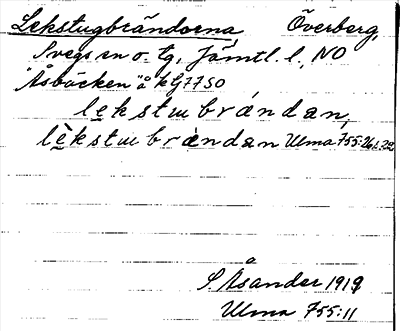 Lekstugbrändorna Överberg,
Svegs sn o. tg, Jämtl. l., NO
"Åsbäcken" å kbl 7750
lekstubrándan,
lèkstubràndan Ulma 755:26 s. 22
S. Åsander 1919
Ulma 755:11